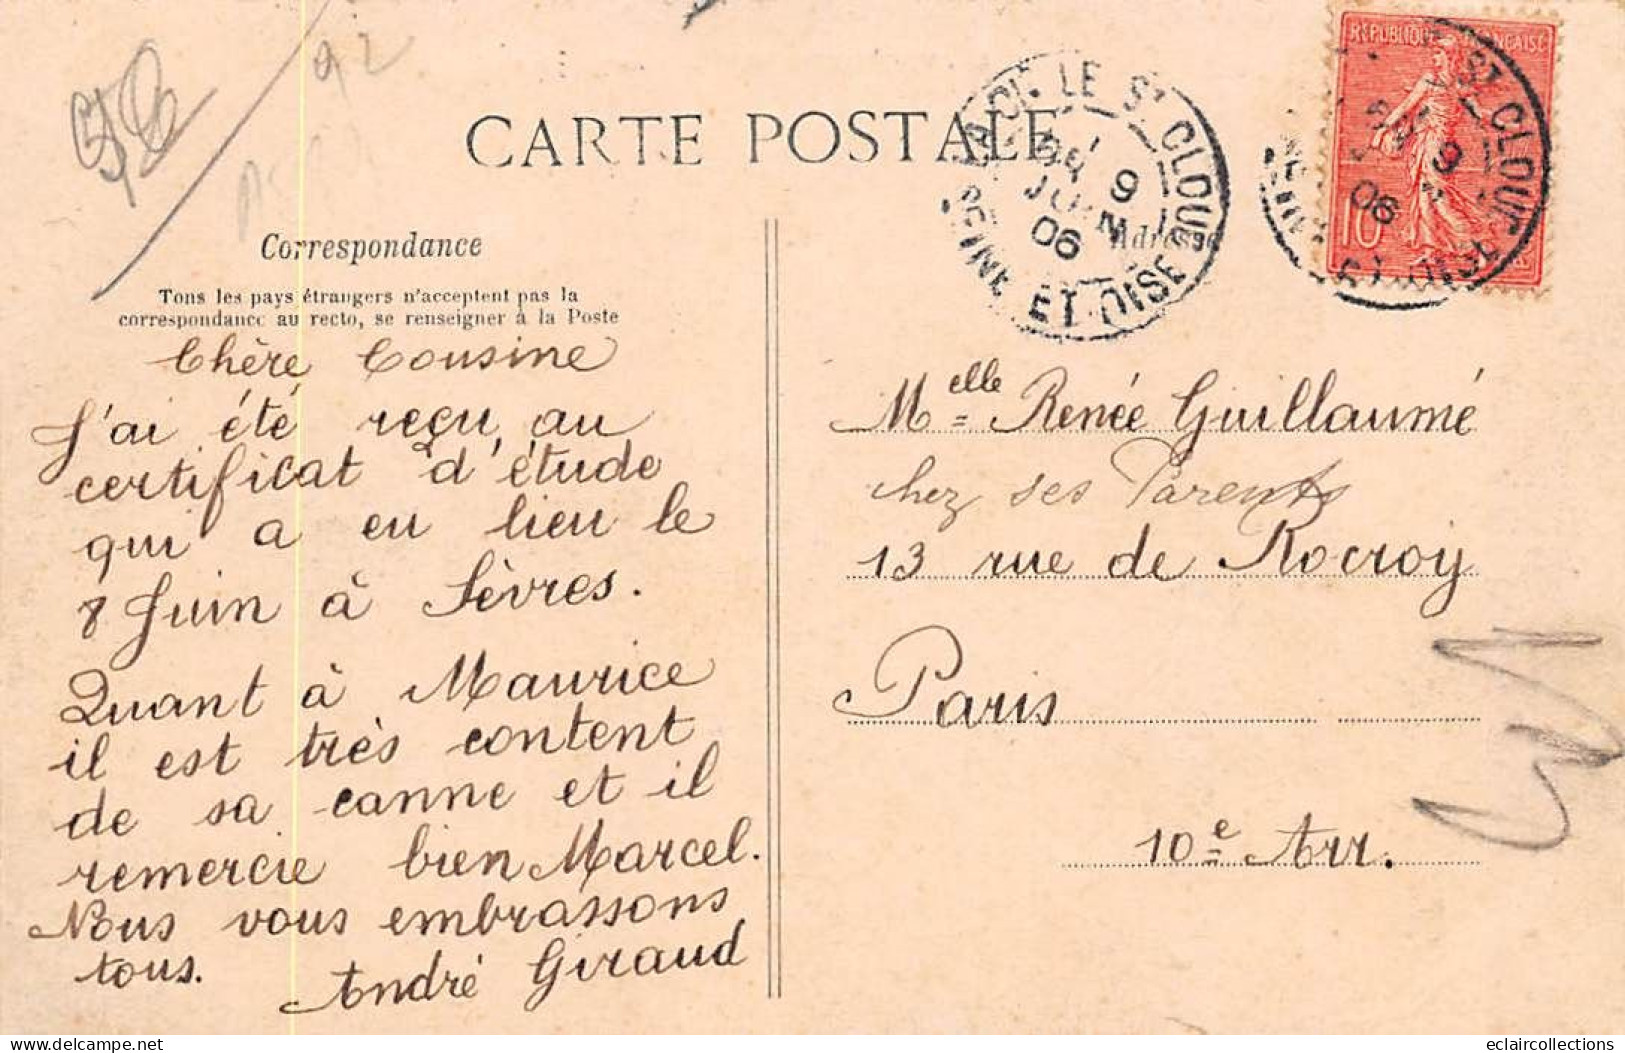 92
CARTE POSTALE
ST CLOUD
SEINE ET OISE
9
JUIN
06
RÉPUBLIQUE FRANÇAISE
10
ST CLOUD
9
06
Correspondance
Adresse
Tous les pays étrangers n'acceptent pas la
correspondance au recto, se renseigner à la Poste
Chère Cousine
J'ai été reçu au
certificat d'étude
qui a eu lieu le
8 Juin à Sèvres.
Quant à Maurice
il est très content
de sa canne et il
remercie bien Marcel.
Nous vous embrassons
tous. André Giraud
Melle Renée Guillaumé
chez ses Parents
13 rue de Rocroy
Paris
10e Arr.
eclaircollections
delcampe.net